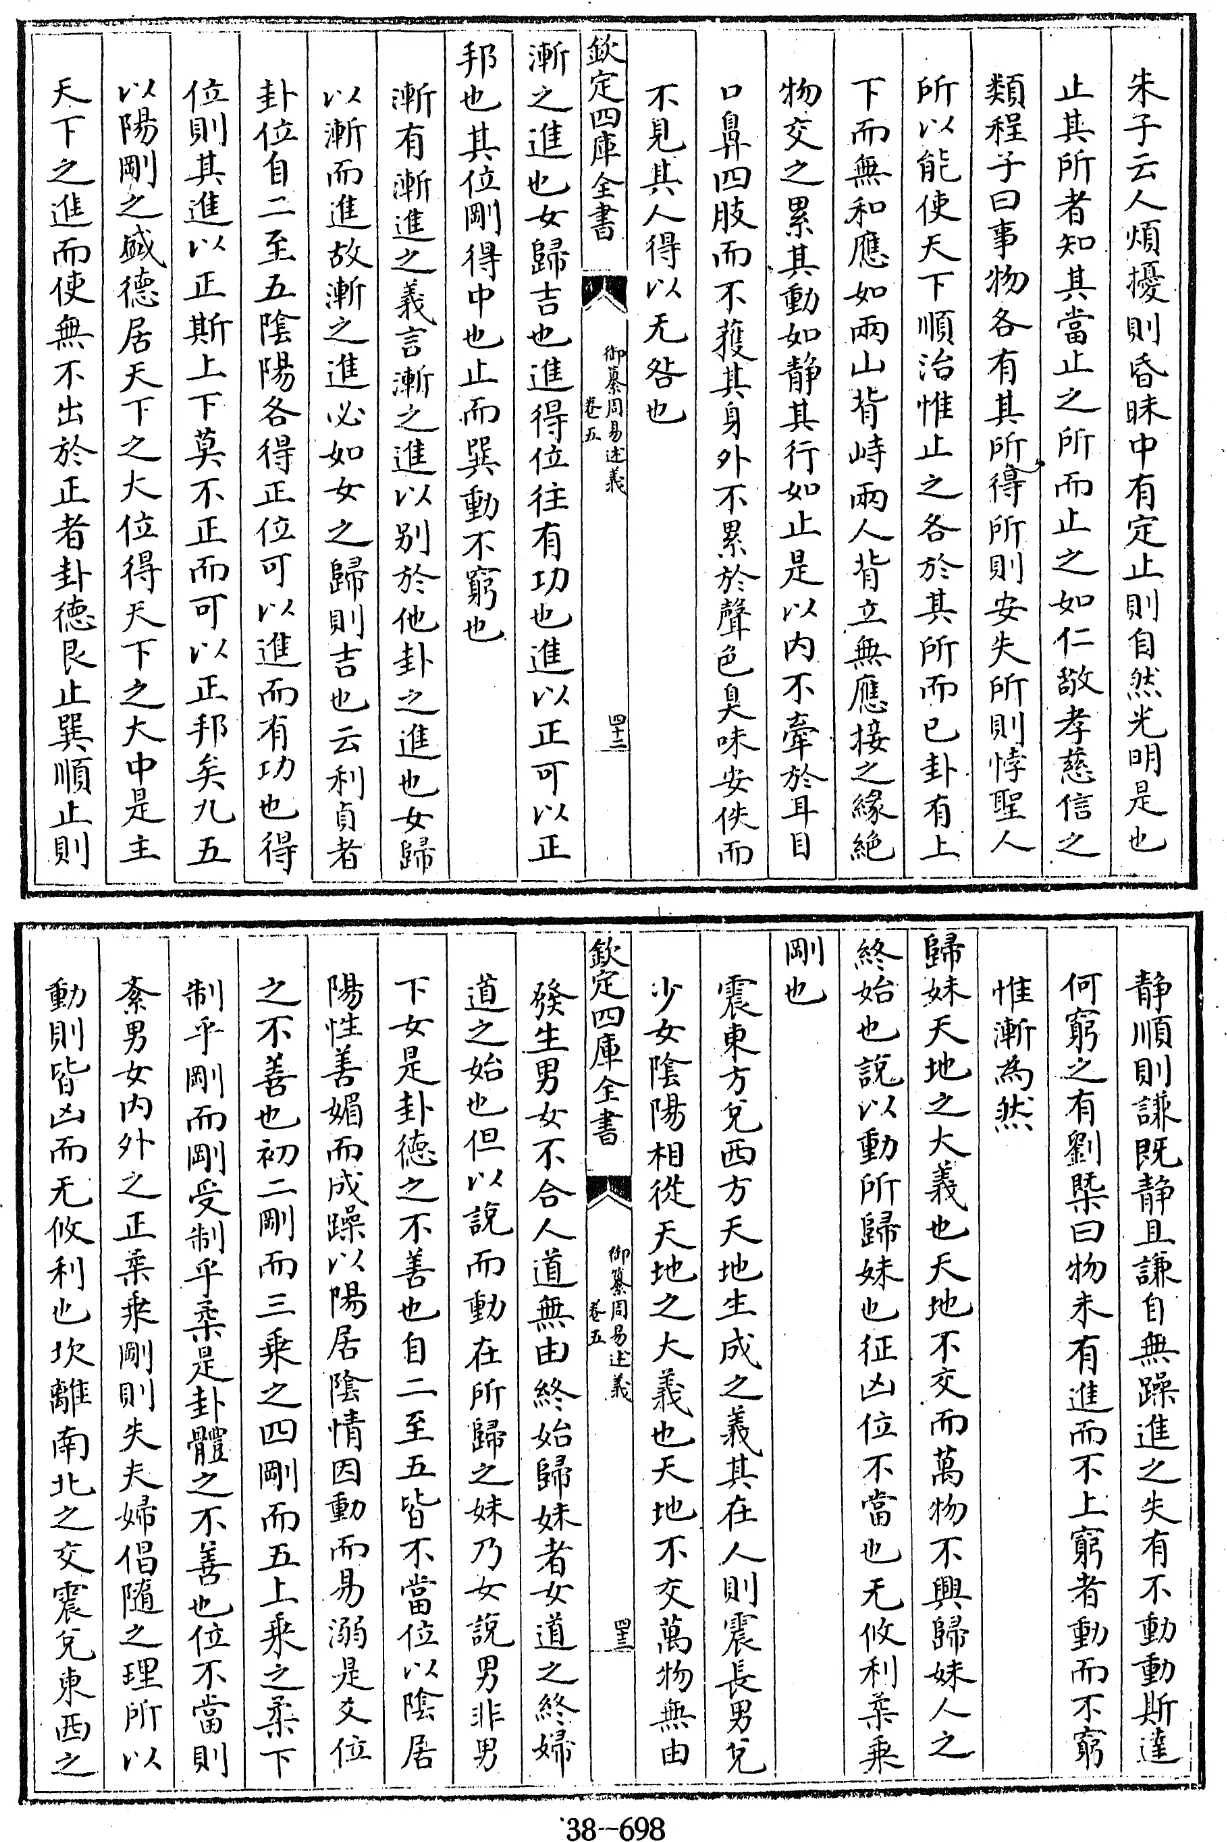 朱子云人煩擾則昏昧中有定止則自然光明是也
止其所者知其當止之所而止之如仁敬孝慈信之
類程子曰事物各有其所得所則安失所則悖聖人
所以能使天下順治惟止之各於其所而已卦有上
下而無和應如兩山背峙兩人背立無應接之緣絶
物交之累其動如静其行如止是以内不牽於耳目
口鼻四肢而不獲其身外不累於聲色臭味安佚而
不見其人得以无咎也
欽定四庫全書
御纂周易述義
卷五
四十二
漸之進也女歸吉也進得位往有功也進以正可以正
邦也其位剛得中也止而巽動不窮也
漸有漸進之義言漸之進以别於他卦之進也女歸
以漸而進故漸之進必如女之歸則吉也云利貞者
卦位自二至五陰陽各得正位可以進而有功也得
位則其進以正斯上下莫不正而可以正邦矣九五
以陽剛之盛德居天下之大位得天下之大中是主
天下之進而使無不出於正者卦德艮止巽順止則
静順則謙既静且謙自無躁進之失有不動動斯達
何窮之有劉槩曰物未有進而不上窮者動而不窮
惟漸為然
歸妹天地之大義也天地不交而萬物不興歸妹人之
終始也說以動所歸妹也征凶位不當也无攸利柔乗
剛也
震東方兌西方天地生成之義其在人則震長男兌
少女陰陽相從天地之大義也天地不交萬物無由
欽定四庫全書
御纂周易述義
卷五
四十三
發生男女不合人道無由終始歸妹者女道之終婦
道之始也但以說而動在所歸之妹乃女說男非男
下女是卦德之不善也自二至五皆不當位以陰居
陽性善媚而成躁以陽居陰情因動而易溺是爻位
之不善也初二剛而三乗之四剛而五上乗之柔下
制乎剛而剛受制乎柔是卦體之不善也位不當則
紊男女内外之正柔乗剛則失夫婦倡隨之理所以
動則皆凶而无攸利也坎離南北之交震兌東西之
38--698